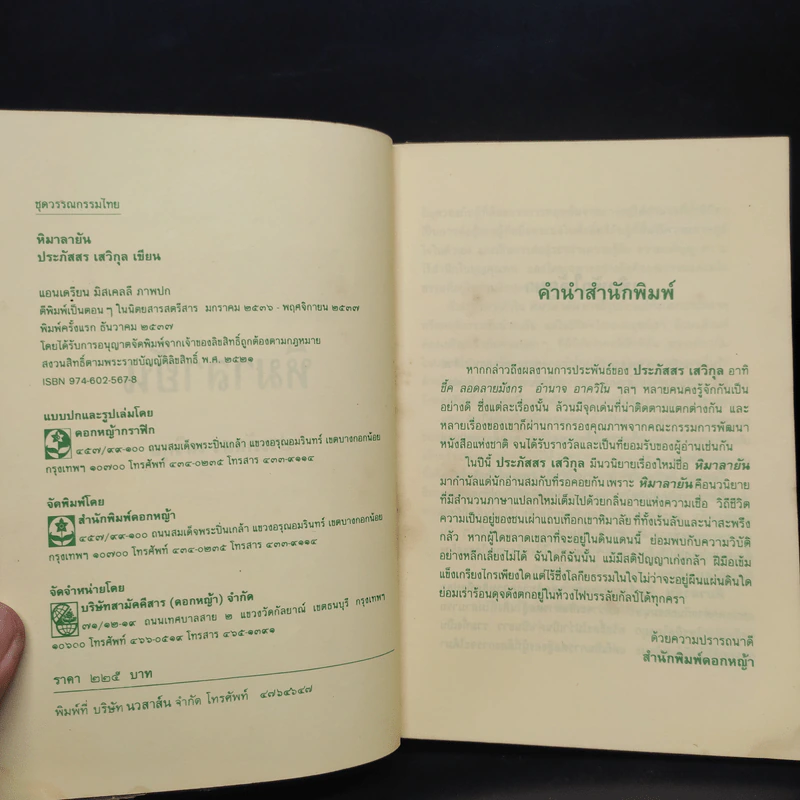 ชุดวรรณกรรมไทย
หิมาลายัน
ประภัสสร เสวิกุล เขียน
แอนเดรียน มิสเคลลี ภาพปก
ตีพิมพ์เป็นตอน ๆ ในนิตยสารสตรีสาร มกราคม ๒๕๓๖ - พฤศจิกายน ๒๕๓๗
พิมพ์ครั้งแรก ธันวาคม ๒๕๓๗
โดยได้รับการอนุญาตจัดพิมพ์จากเจ้าของลิขสิทธิ์ถูกต้องตามกฎหมาย
สงวนสิทธิ์ตามพระราชบัญญัติลิขสิทธิ์ พ.ศ. ๒๕๒๑
ISBN 974-602-567-8
แบบปกและรูปเล่มโดย
ดอกหญ้ากราฟิก
๔๕๗/๙๙-๑๐๐ ถนนสมเด็จพระปิ่นเกล้า แขวงอรุณอมรินทร์ เขตบางกอกน้อย
กรุงเทพฯ ๑๐๗๐๐ โทรศัพท์ ๔๓๔-๐๒๓๕ โทรสาร ๔๓๓-๙๑๑๔
จัดพิมพ์โดย
สำนักพิมพ์ดอกหญ้า
๔๕๗/๙๙-๑๐๐ ถนนสมเด็จพระปิ่นเกล้า แขวงอรุณอมรินทร์ เขตบางกอกน้อย
กรุงเทพฯ ๑๐๗๐๐ โทรศัพท์ ๔๓๔-๐๒๓๕ โทรสาร ๔๓๓-๙๑๑๔
จัดจำหน่ายโดย
บริษัทสามัคคีสาร (ดอกหญ้า) จำกัด
๗๑/๑๒-๑๙ ถนนเทศบาลสาย ๒ แขวงวัดกัลยาณ์ เขตธนบุรี กรุงเทพฯ
๑๐๖๐๐ โทรศัพท์ ๔๖๖-๐๕๑๙ โทรสาร ๔๖๕-๑๓๙๑
ราคา ๒๒๕ บาท
พิมพ์ที่ บริษัท นวสาส์น จำกัด โทรศัพท์ ๔๗๖๔๖๔๗
คำนำสำนักพิมพ์
หากกล่าวถึงผลงานการประพันธ์ของ ประภัสสร เสวิกุล อาทิ
ชี้ค ลอดลายมังกร อำนาจ อาควิโน ฯลฯ หลายคนคงรู้จักกันเป็น
อย่างดี ซึ่งแต่ละเรื่องนั้น ล้วนมีจุดเด่นที่น่าติดตามแตกต่างกัน และ
หลายเรื่องของเขาก็ผ่านการกรองคุณภาพจากคณะกรรมการพัฒนา
หนังสือแห่งชาติ จนได้รับรางวัลและเป็นที่ยอมรับของผู้อ่านเช่นกัน
ในปีนี้ ประภัสสร เสวิกุล มีนวนิยายเรื่องใหม่ชื่อ หิมาลายัน
มากำนัลแด่นักอ่านสมกับที่รอคอยกันเพราะ หิมาลายัน คือนวนิยาย
ที่มีสำนวนภาษาแปลกใหม่เต็มไปด้วยกลิ่นอายแห่งความเชื่อ วิถีชีวิต
ความเป็นอยู่ของชนเผ่าแถบเทือกเขาหิมาลัย ที่ทั้งเร้นลับและน่าสะพรึง
กลัว หากผู้ใดขลาดเขลาที่จะอยู่ในดินแดนนี้ ย่อมพบกับความวิบัติ
อย่างหลีกเลี่ยงไม่ได้ ฉันใดก็ฉันนั้น แม้มีสติปัญญาเก่งกล้า ฝีมือเข้ม
แข็งเกรียงไกรเพียงใด แต่ไร้ซึ่งโลกียธรรมในใจ ไม่ว่าจะอยู่ผืนแผ่นดินใด
ย่อมเร่าร้อนดุจดังตกอยู่ในห้วงไฟบรรลัยกัลป์ได้ทุกครา
ด้วยความปรารถนาดี
สำนักพิมพ์ดอกหญ้า